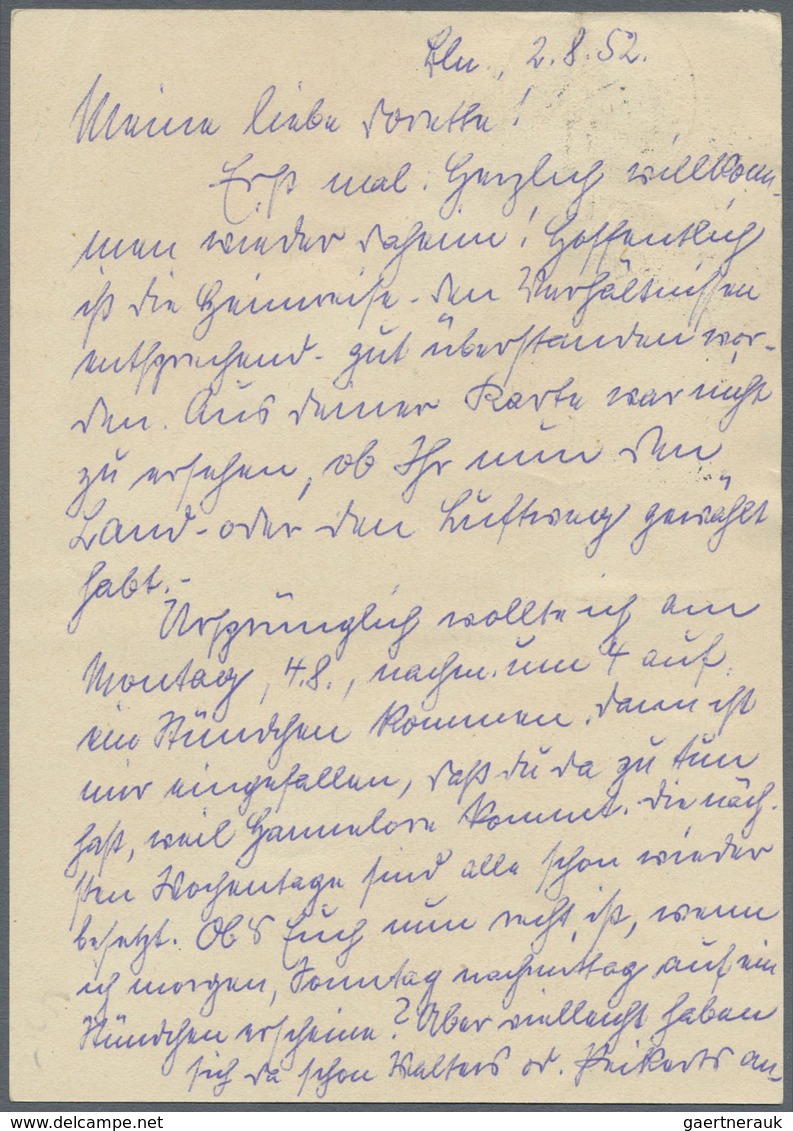 Bln., 2.8.52.
Meine liebe Dorette!
Erst mal: Herzlich willkom-
men wieder daheim! Hoffentlich
ist die Heimreise - den Verhältnissen
entsprechend - gut überstanden wor-
den. Aus deiner Karte war nicht
zu ersehen, ob Ihr nun den
Land- oder den Luftweg gewählt
habt.-
Ursprünglich wollte ich am
Montag, 4.8., nachm. um 4 auf
ein Stündchen kommen. Dann ist
mir eingefallen, daß du da zu tun
hast, weil Hannelore kommt. Die näch-
sten Wochentage sind alle schon wieder
besetzt. Ob's Euch nun recht ist, wenn
ich morgen, Sonntag nachmittag auf ein
Stündchen erscheine? Aber vielleicht haben
sich da schon Walters od. an-
gaertnerauk